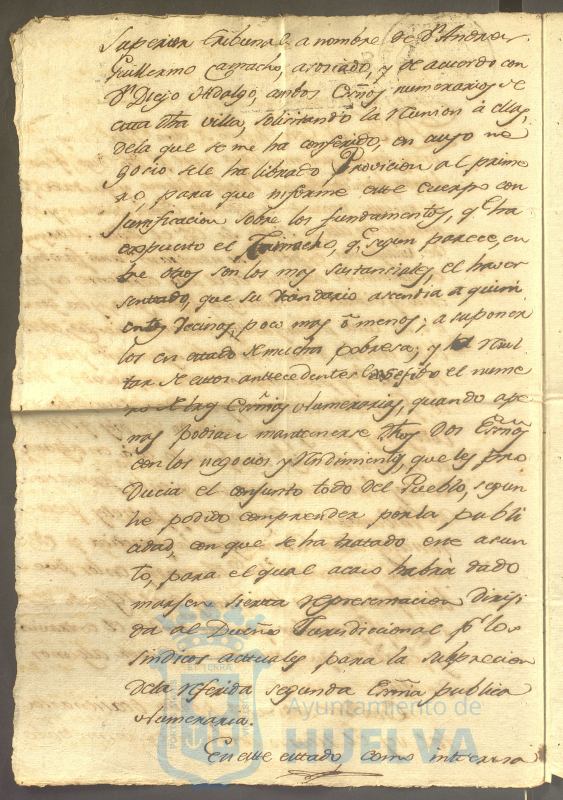 Superior Tribunal a nombre de Dn. Andres
Guillermo Camacho, asociado, y de acuerdo con
Dn. Diego Hidalgo, ambos Essnos numerarios de
esta dha villa, solicitando la reunion à ellas,
dela que se me ha conferido, en cuyo ne
gocio sele ha librado Provicion al prime
ro, para que informe este cuerpo con
justificacion sobre los fundamentos, qe ha
expuesto el Camacho, qe segun parece, en
tre otros son los mas sustanciales el haver
sentado, que su vecindario ascendia a quini
entos vecinos, poco mas ô menos; a suponer
los en estado de mucha pobresa; y resul
tar de estos antecedentes el nume
ro de las Essnias Numerarias, quando ape
nas podian mantenerse dhos dos Essnos
con los negocios y rendimientos, que les pro
ducia el conjunto todo del Pueblo, segun
he podido comprender por la publi
cidad, con que se ha tratado este asun
to, para el qual acaso habrà dado
marjen sierta representacion diriji
da al Dueño Jurisdicional pr. los
sindicos actuales para la supprecion
dela referida segunda Essnia publica
Numeraria.
En este estado, como interesa
Ayuntamiento de
HUELVA